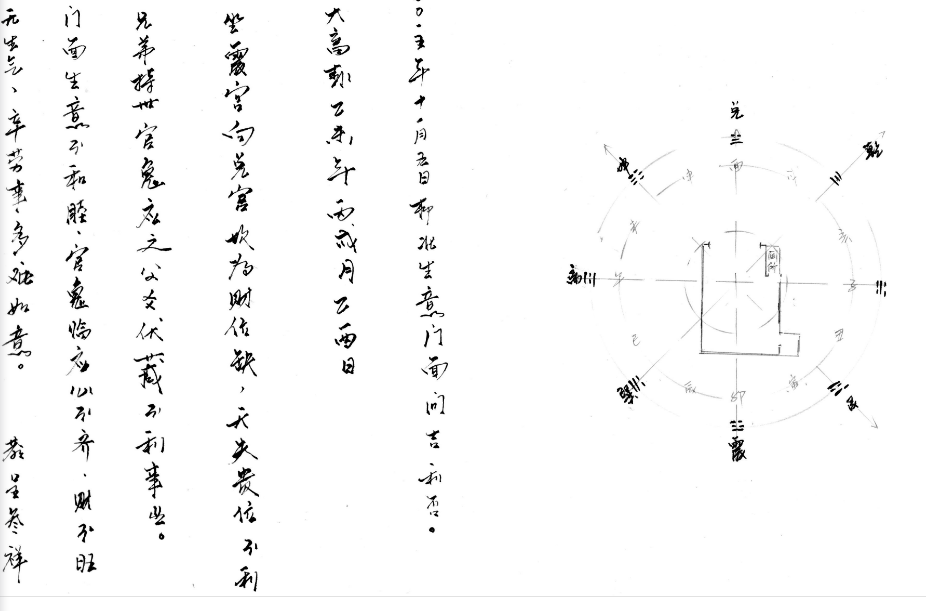 〇一五年十一月五日 生意门面问吉利否。
乙未年丙戌月乙酉日
坐震宫向兑宫 为财位缺，天失贵位不利
兄弟持世官鬼应之父爻伏藏不利事业。
门面生意不和睦、官鬼临应心不齐、财不旺
无生气、辛劳事多难如意。 恭呈参祥
兑
乾
坤
酉
申
戌
亥
未
午
子
厕所
离
巳
丑
辰
寅
卯
巽
艮
震